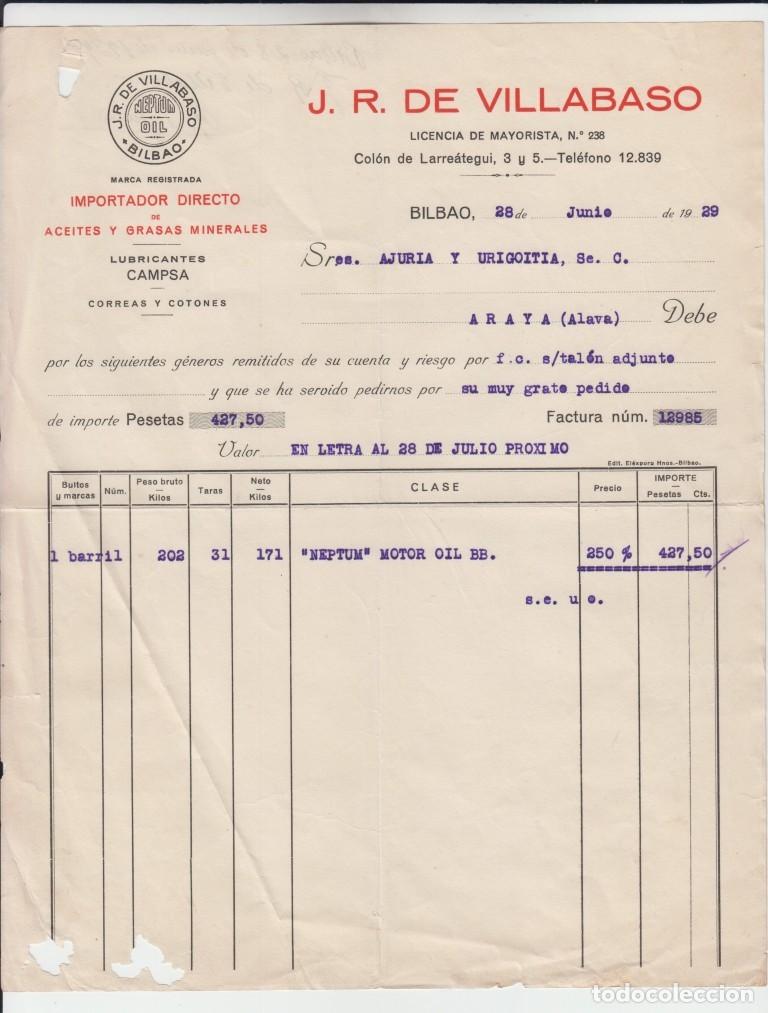 J. R. DE VILLABASO
NEPTUM
OIL
BILBAO
MARCA REGISTRADA
IMPORTADOR DIRECTO
DE
ACEITES Y GRASAS MINERALES
LUBRICANTES
CAMPSA
CORREAS Y COTONES
J. R. DE VILLABASO
LICENCIA DE MAYORISTA, N.º 238
Colón de Larreátegui, 3 y 5.—Teléfono 12.839
BILBAO, 28 de Junio de 1929
Sres. AJURIA Y URIGOITIA, Se. C.
ARAYA (Alava) Debe
por los siguientes géneros remitidos de su cuenta y riesgo por f.c. s/talón adjunto
y que se ha servido pedirnos por su muy grato pedido
de importe Pesetas 427,50 Factura núm. 12985
Valor EN LETRA AL 28 DE JULIO PROXIMO
Edit. Eléxpuru Hnos.-Bilbao.
Bultos y marcas Núm. Peso bruto — Kilos Taras Neto — Kilos CLASE Precio IMPORTE — Pesetas Cts.
1 barril 202 31 171 "NEPTUM" MOTOR OIL BB. 250 % 427,50
s.e. u o.
todocoleccion